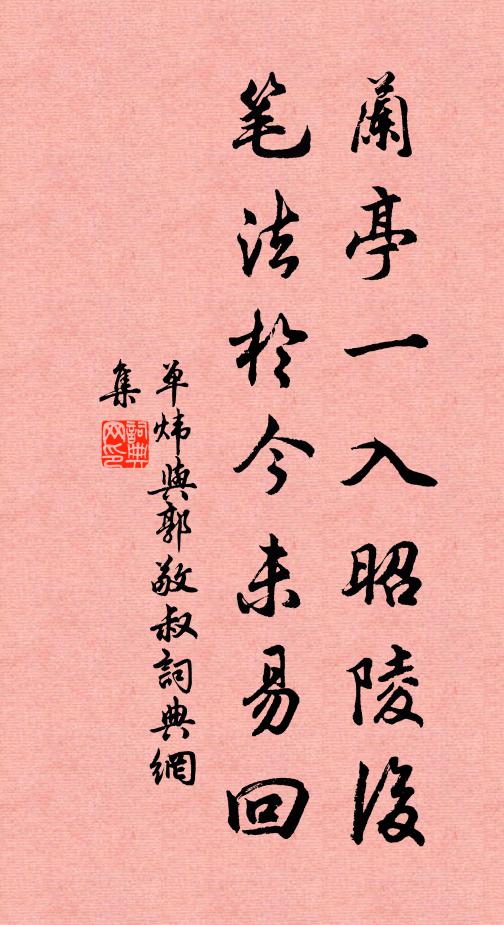 蘭亭一入昭陵後
笔法於今未易回
单炜與郭敬叔詞典網
集
詞典网印